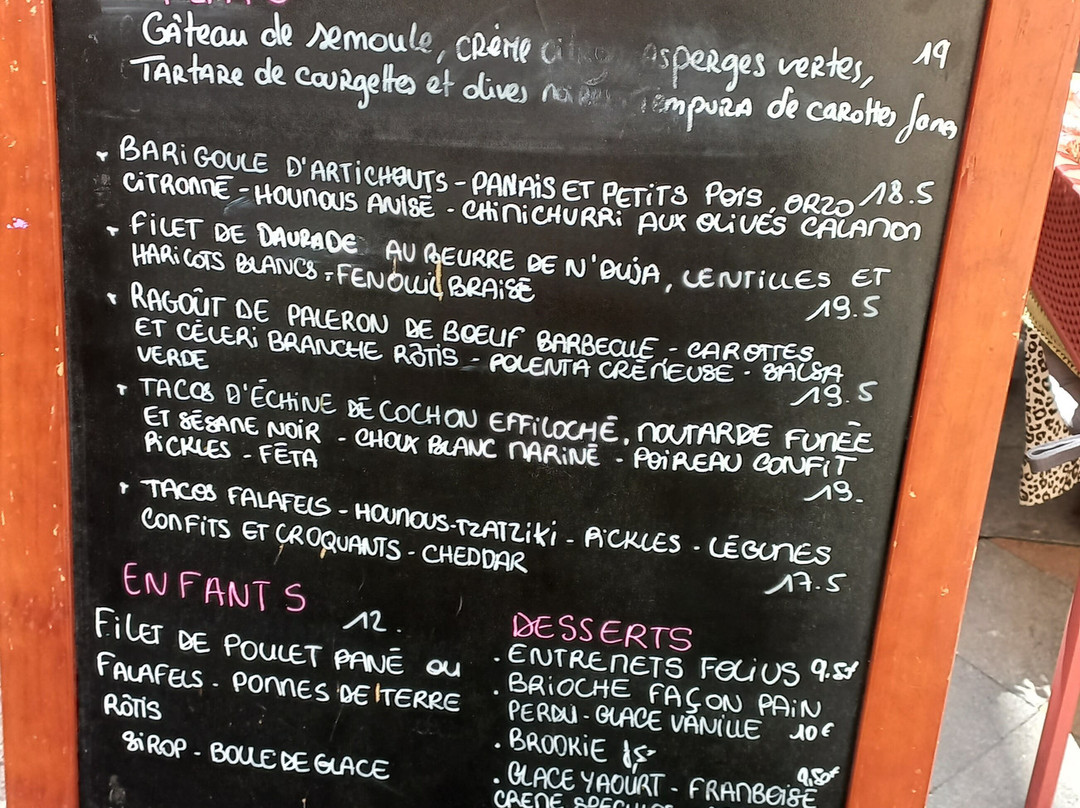 Gâteau de semoule, crème asperges vertes, 19
Tartare de courgettes et olives Tempura de carottes fanes
BARIGOULE D'ARTICHAUTS - PANAIS ET PETITS POIS, ORZO 18.5
CITRONNÉ - HOUMOUS ANISÉ - CHIMICHURRI AUX OLIVES CALAMON
FILET DE DAURADE AU BEURRE DE N'DUJA, LENTILLES ET
HARICOTS BLANCS, FENOUIL BRAISÉ 19.5
RAGOÛT DE PALERON DE BŒUF BARBECUE - CAROTTES
ET CÉLERI BRANCHE RÔTIS - POLENTA CRÉMEUSE - SALSA
VERDE 19.5
TACOS D'ÉCHINE DE COCHON EFFILOCHÉ, MOUTARDE FUMÉE
ET SÉSAME NOIR - CHOUX BLANC MARINÉ - POIREAU CONFIT
PICKLES - FÉTA 19.
TACOS FALAFELS - HOUMOUS-TZATZIKI - PICKLES - LÉGUMES
CONFITS ET CROQUANTS - CHEDDAR
17.5
ENFANTS
12.
FILET DE POULET PANÉ OU
FALAFELS - POMMES DE TERRE
RÔTIS
SIROP - BOULE DE GLACE
DESSERTS
. ENTREMETS FOLIUS 9.5€
. BRIOCHE FAÇON PAIN
PERDU - GLACE VANILLE 10€
. BROOKIE
9,50€
. GLACE YAOURT - FRAMBOISE
CRÈME SPECULOS